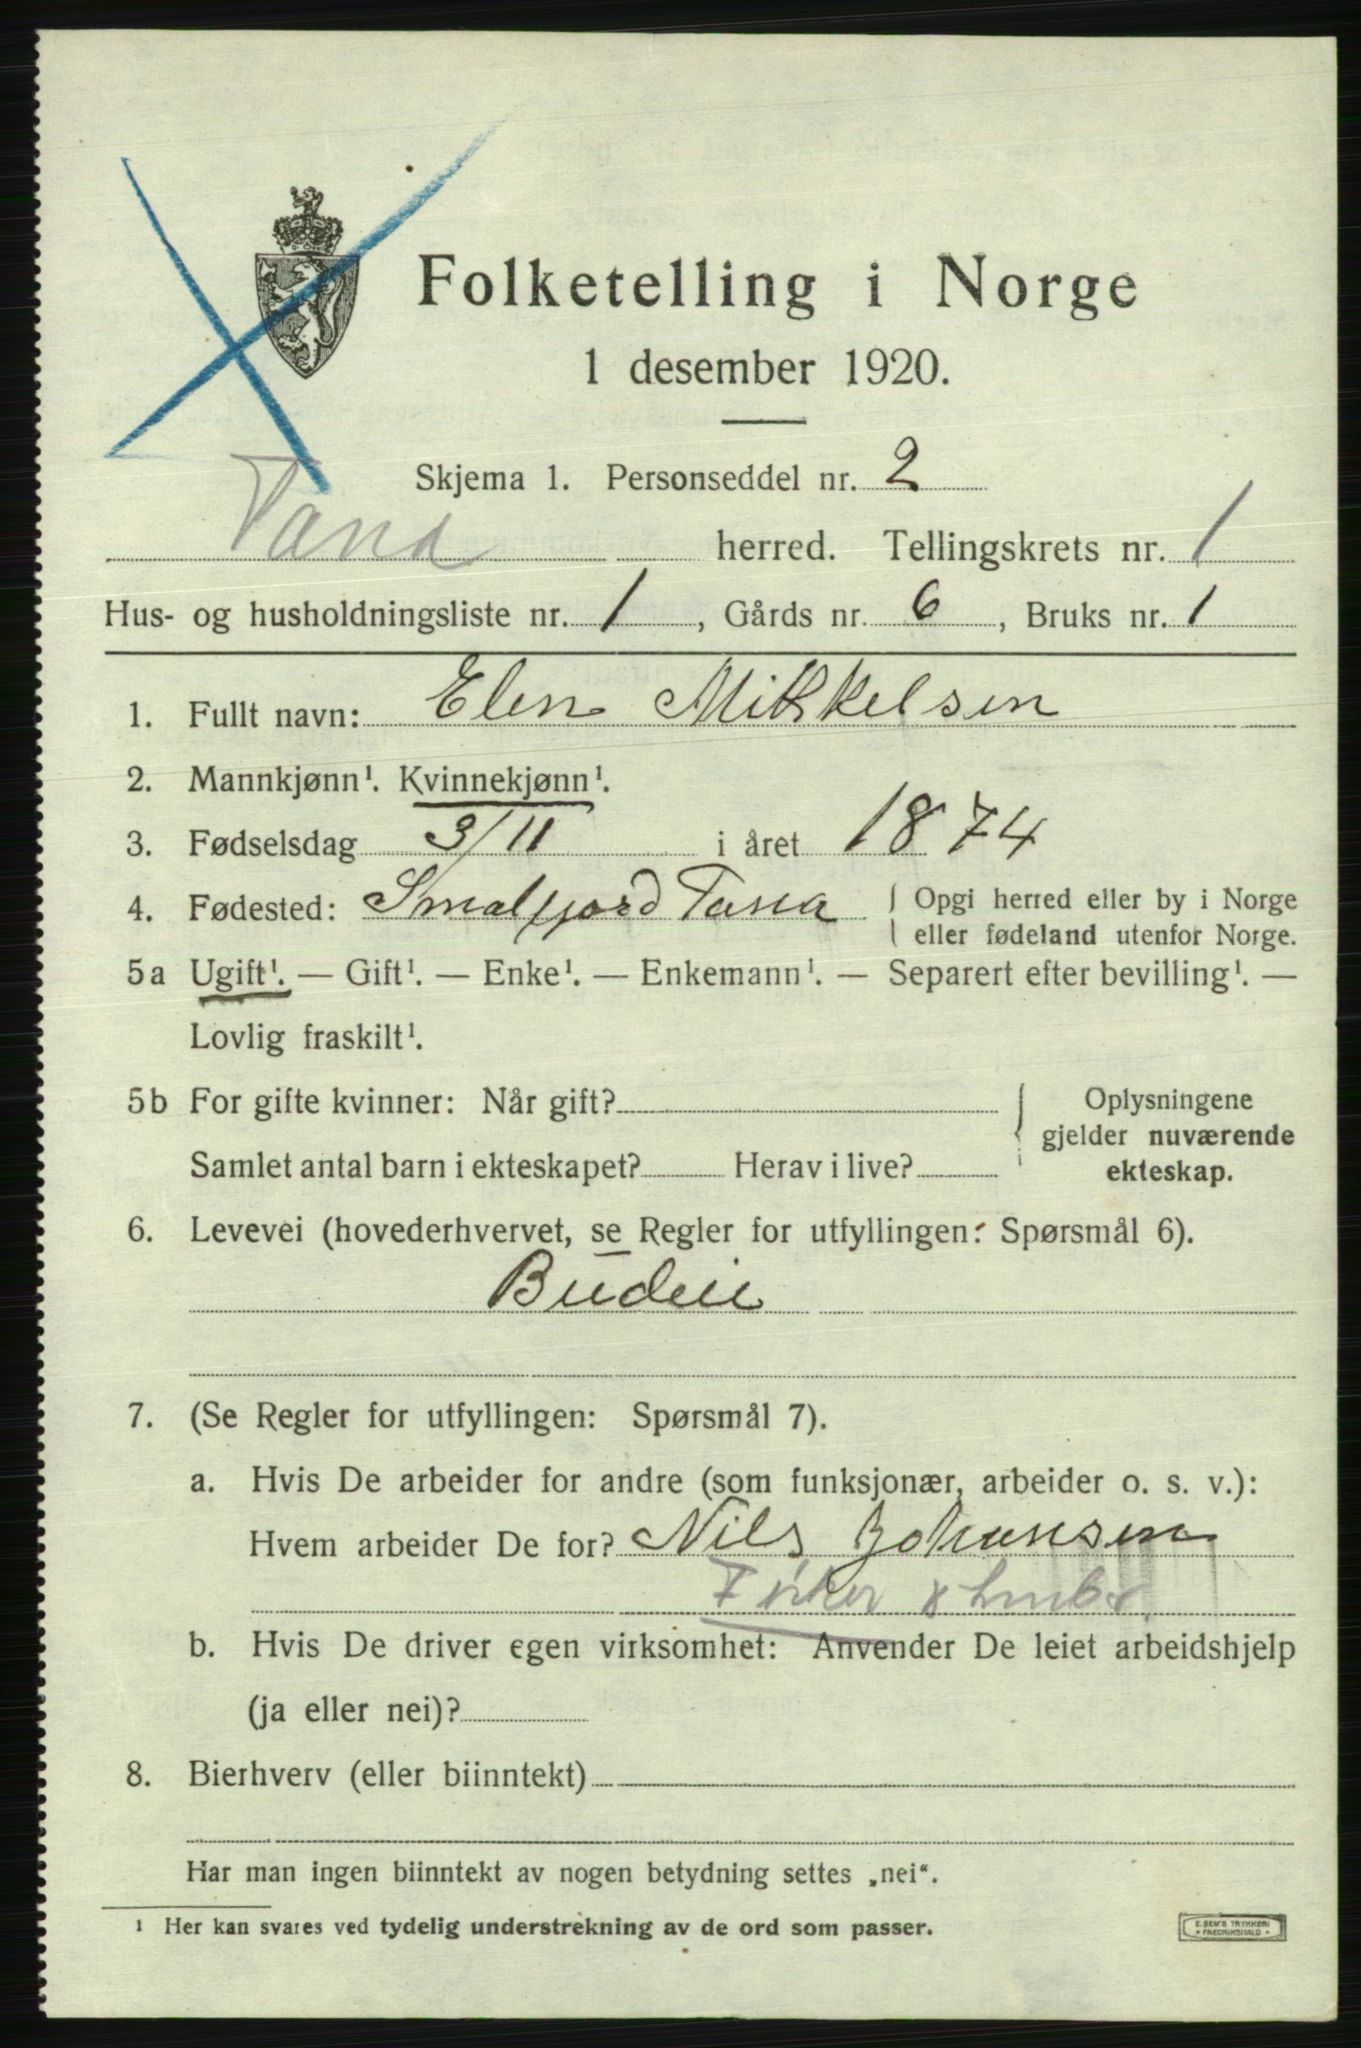 Folketelling i Norge
1 desember 1920.
Skjema 1. Personseddel nr. 2
Tana herred. Tellingskrets nr. 1
Hus- og husholdningsliste nr. 1, Gårds nr. 6, Bruks nr. 1
1. Fullt navn: Elen Mikkelsen
2. Mannkjønn¹. Kvinnekjønn¹.
3. Fødselsdag 3/11 i året 1874
4. Fødested: Smalfjord Tana { Opgi herred eller by i Norge
eller fødeland utenfor Norge.
5a Ugift¹. — Gift¹. — Enke¹. — Enkemann¹. — Separert efter bevilling¹. —
Lovlig fraskilt¹.
5b For gifte kvinner: Når gift? Oplysningene
gjelder nuværende
Samlet antal barn i ekteskapet? Herav i live?
ekteskap.
6. Levevei (hovederhvervet, se Regler for utfyllingen: Spørsmål 6).
Budeie
7. (Se Regler for utfyllingen: Spørsmål 7).
a. Hvis De arbeider for andre (som funksjonær, arbeider o. s. v.):
Hvem arbeider De for? Nils Johansen
Fisker &
b. Hvis De driver egen virksomhet: Anvender De leiet arbeidshjelp
(ja eller nei)?
8. Bierhverv (eller biinntekt)
Har man ingen biinntekt av nogen betydning settes „nei“.
¹ Her kan svares ved tydelig understrekning av de ord som passer.
E. SEM'S TRYKKERI
* FREDRIKSHALD *